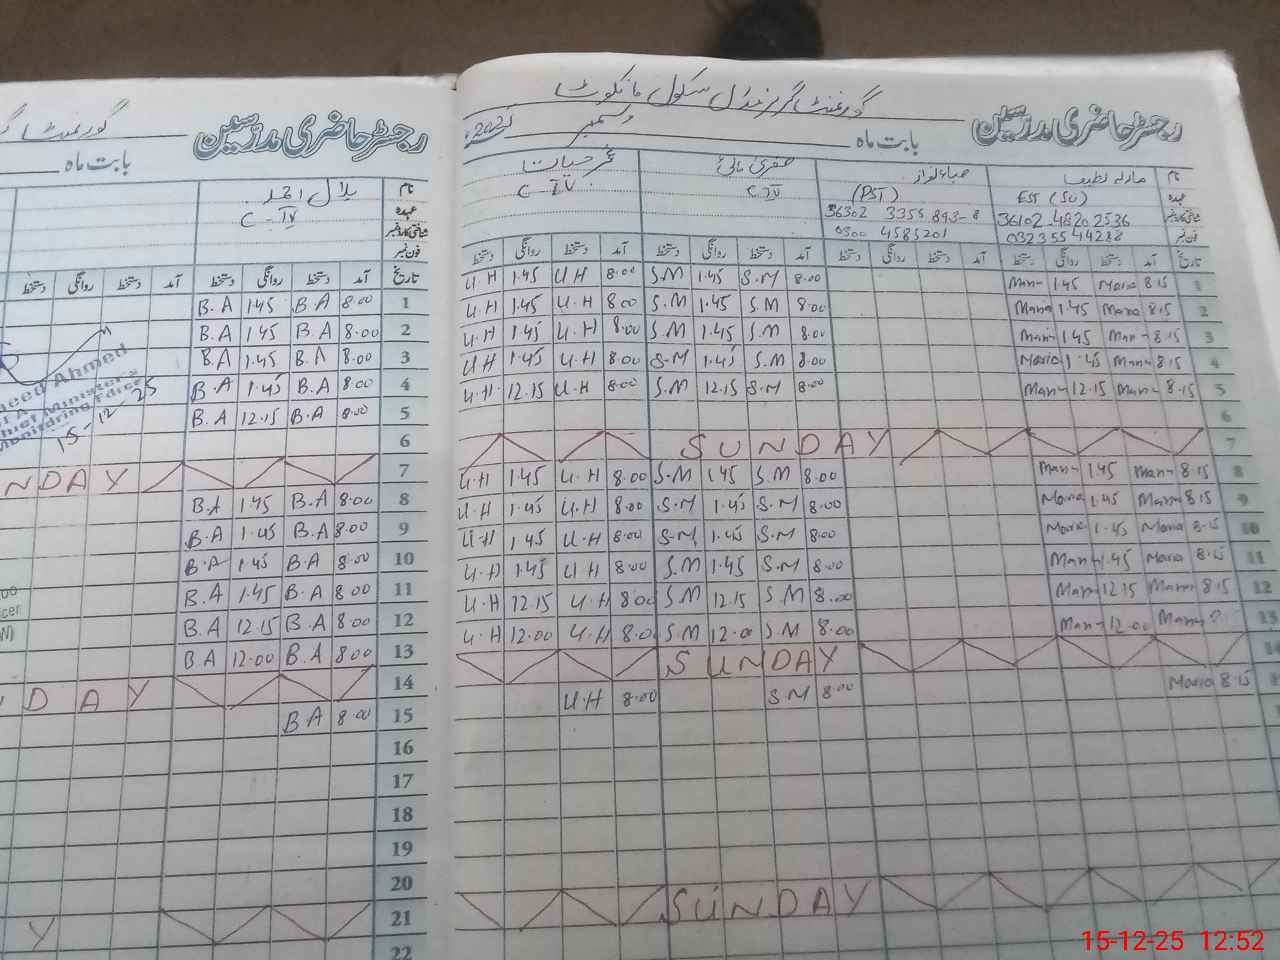 رجسٹر حاضری مدرسین
بابت ماہ
نام
عہدہ
شناختی کارڈ نمبر
فون نمبر
بلال احمد
C-IV
تاریخ آمد دستخط روانگی دستخط آمد دستخط روانگی دستخط
1 8.00 B.A 1.45 B.A
2 8.00 B.A 1.45 B.A
3 8.00 B.A 1.45 B.A
4 8.00 B.A 1.45 B.A
5 8.00 B.A 12.15 B.A
6
7 NDAY
8 8.00 B.A 1.45 B.A
9 8.00 B.A 1.45 B.A
10 8.00 B.A 1.45 B.A
11 8.00 B.A 1.45 B.A
12 8.00 B.A 12.15 B.A
13 8.00 B.A 12.00 B.A
14 DAY
15 8.00 B.A
16
17
18
19
20
21 Y
22
eed Ahmed
hief Minister's
Monitoring Force
15-12-25
گورنمنٹ گرلز مڈل سکول مانکوٹ
رجسٹر حاضری مدرسین
بابت ماہ دسمبر 2025
نام
عہدہ
شناختی کارڈ نمبر
فون نمبر
EST (SU)
36102 4820 2536
0323 55 44288
(PST)
36302 3355 893-8
0300 4585201
صغریٰ مائی
C-IV
عمر حیات
C-IV
تاریخ آمد دستخط روانگی دستخط آمد دستخط روانگی دستخط آمد دستخط روانگی دستخط آمد دستخط روانگی دستخط
1 8.15 Maria 1.45 8.00 S.M 1.45 S.M 8.00 U.H 1.45 U.H
2 8.15 Maria 1.45 Maria 8.00 S.M 1.45 S.M 8.00 U.H 1.45 U.H
3 8.15 1.45 8.00 S.M 1.45 S.M 8.00 U.H 1.45 U.H
4 8.15 1.45 Maria 8.00 S.M 1.45 S.M 8.00 U.H 1.45 U.H
5 8.15 12.15 8.00 S.M 12.15 S.M 8.00 U.H 12.15 U.H
6
7 SUNDAY
8 8.15 1.45 8.00 S.M 1.45 S.M 8.00 U.H 1.45 U.H
9 8.15 1.45 Maria 8.00 S.M 1.45 S.M 8.00 U.H 1.45 U.H
10 8.15 Maria 1.45 Maria 8.00 S.M 1.45 S.M 8.00 U.H 1.45 U.H
11 8.15 Maria 1.45 8.00 S.M 1.45 S.M 8.00 U.H 1.45 U.H
12 8.15 12.15 8.00 S.M 12.15 S.M 8.00 U.H 12.15 U.H
13 12.00 8.00 S.M 12.00 S.M 8.00 U.H 12.00 U.H
14 SUNDAY
8.15 Maria 8.00 S.M 8.00 U.H
SUNDAY
15-12-25 12:52